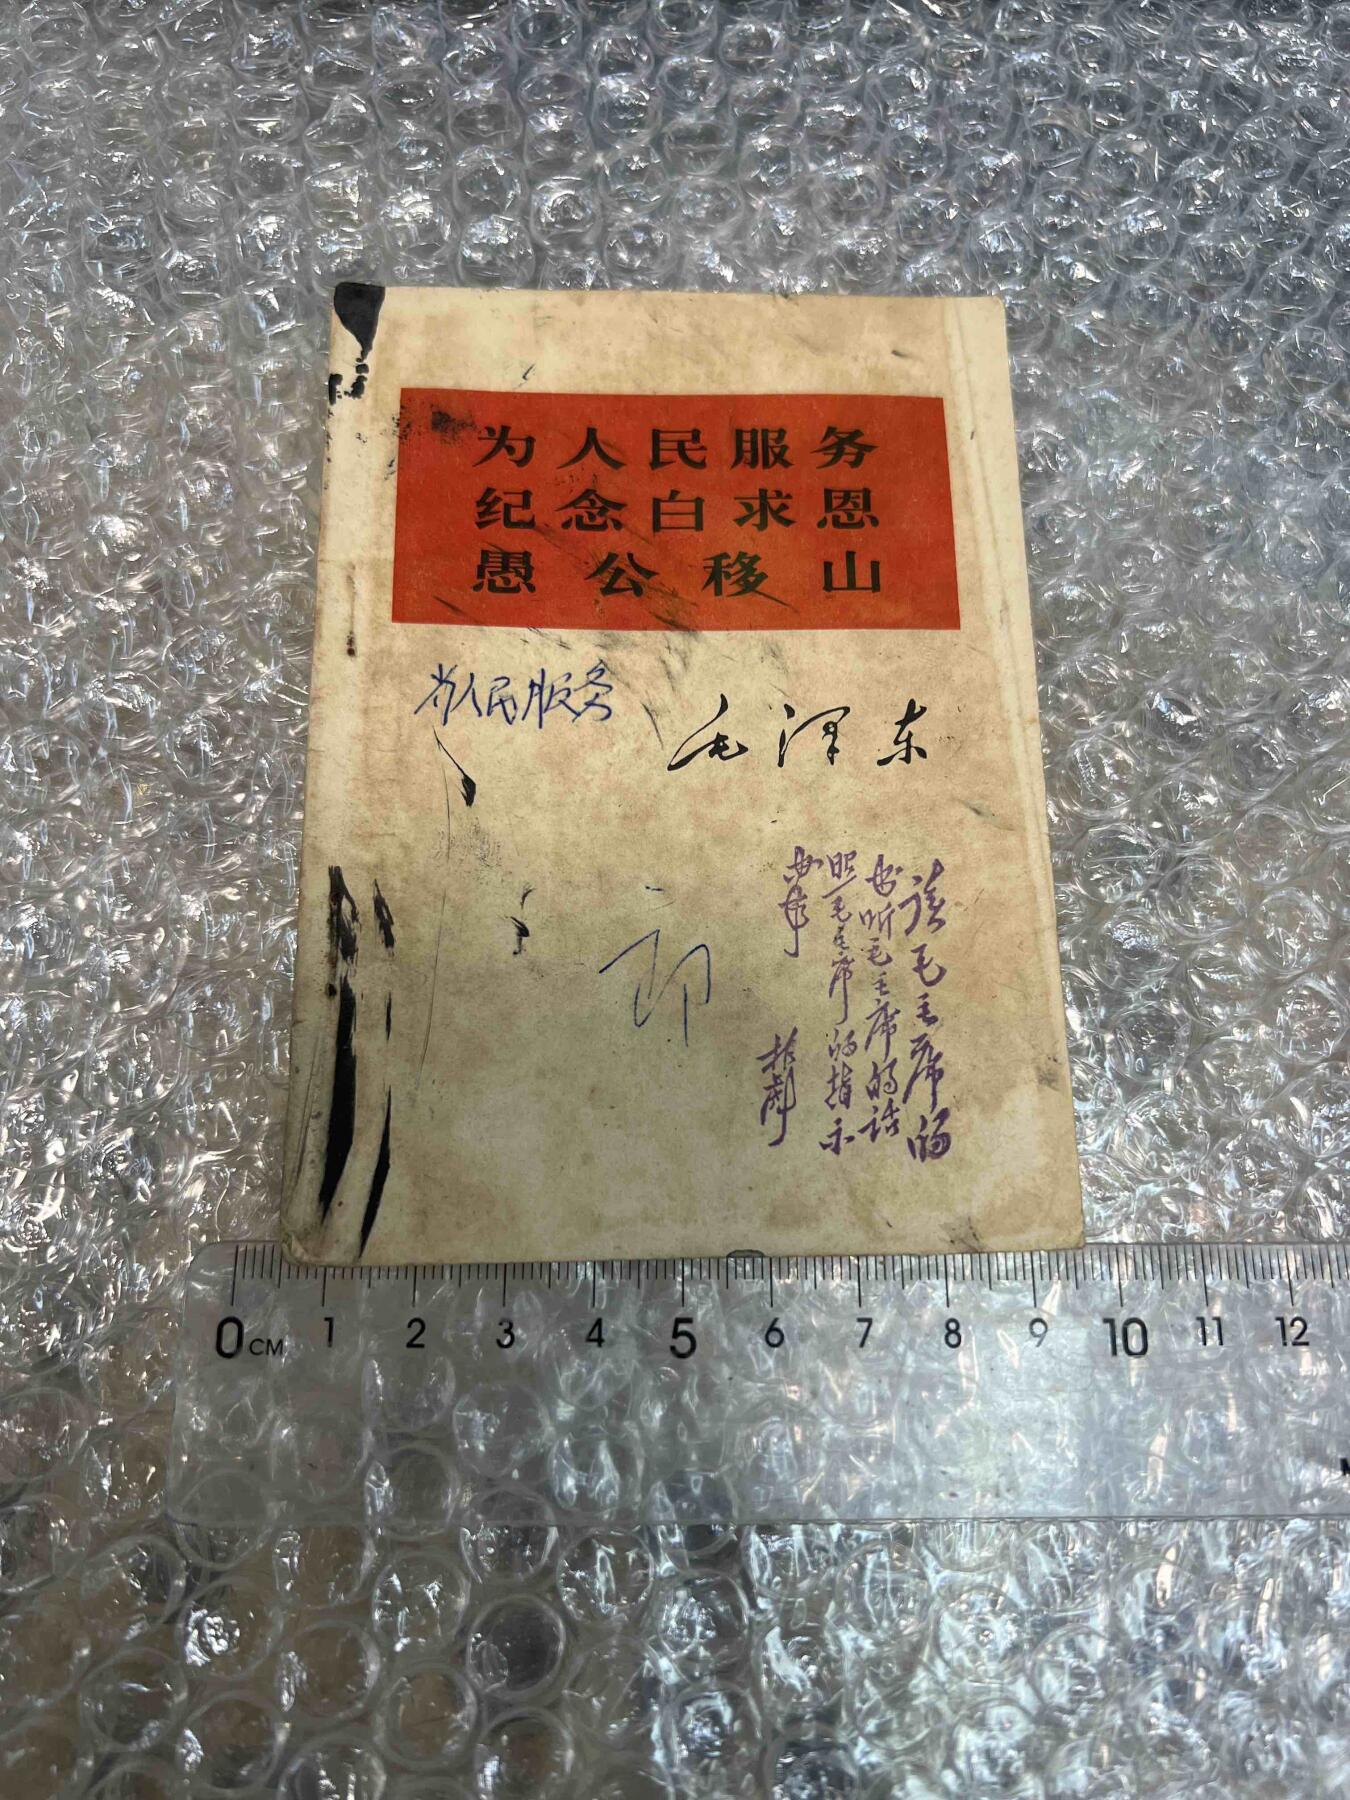 为人民服务
纪念白求恩
愚公移山
为人民服务
毛泽东
读毛主席的
书听毛主席的话
照毛主席的指示
办事
林彪
0 CM 1 2 3 4 5 6 7 8 9 10 11 12